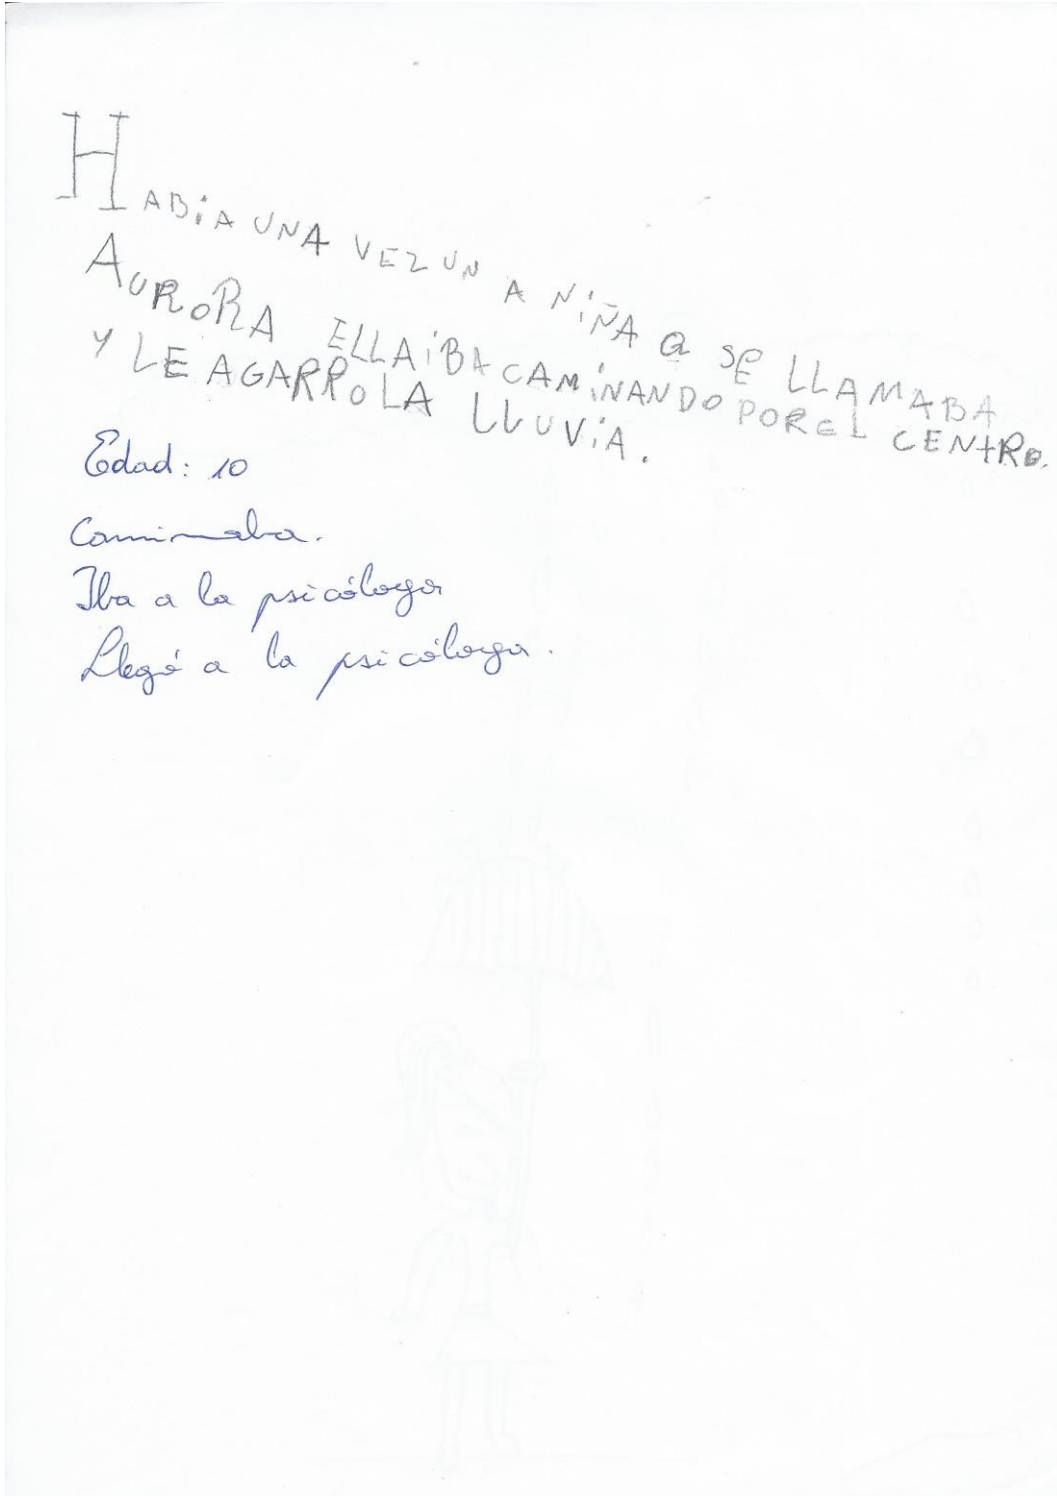 HABíA UNA VEZ UN A NiÑA Q SE LLAMABA
AURORA ELLA iBA CAMiNANDO POR EL CENTRO.
Y LE AGARRO LA LLUViA.
Edad: 10
Caminaba.
Iba a la psicóloga
Llegó a la psicóloga.